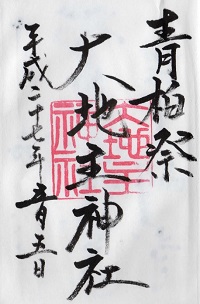 青柏祭
大地主神社
平成二十七年五月五日
大地主
神社